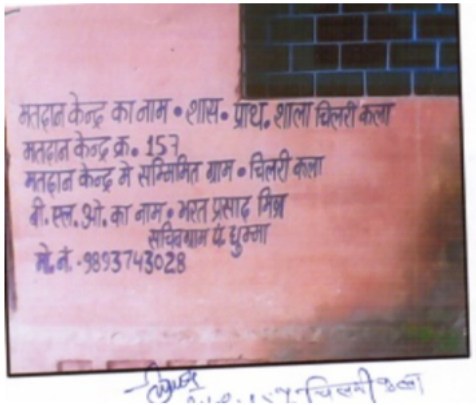 मतदान केन्द्र का नाम • शास. प्राथ. शाला चिलरी कला
मतदान केन्द्र क्र. 157
मतदान केन्द्र मे सम्मिमित ग्राम • चिलरी कला
बी. एल. ओ. का नाम • भरत प्रसाद मिश्र
सचिव ग्राम पं. धुम्मा
मो. नं. -9893743028
चिलरी कला